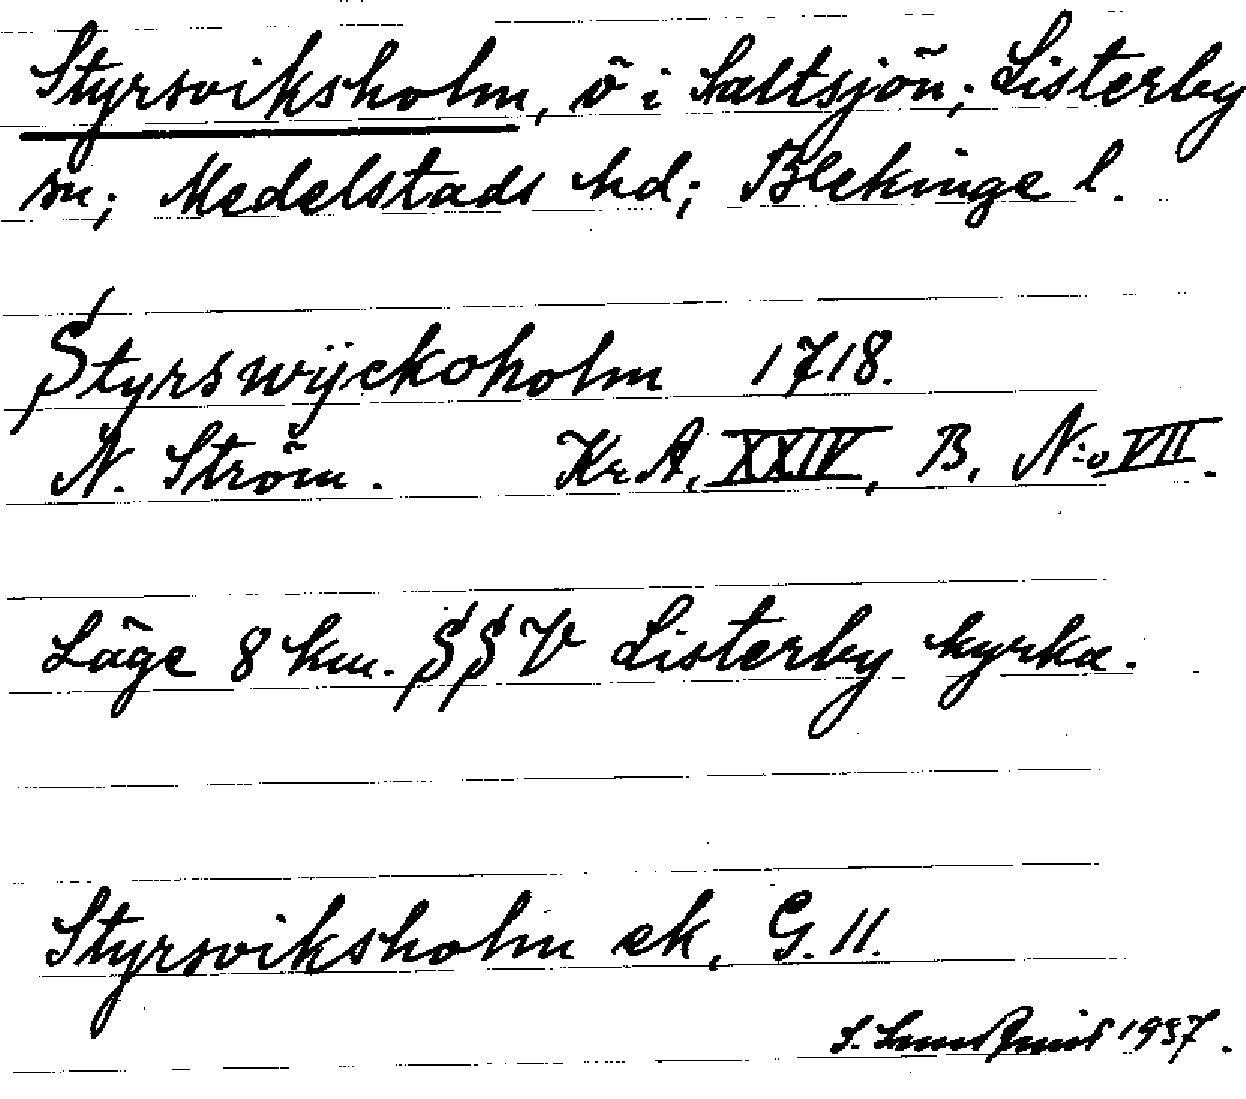 Styrsviksholm, ö i Saltsjön; Listerby
sn; Medelstads hd; Blekinge l.
Styrswijckoholm 1718.
N. Ström. Kr.A, XXIV, B, N:o VII.
Läge 8 km. SSV Listerby kyrka.
Styrsviksholm ek, G. 11.
S. Lundquist 1937.